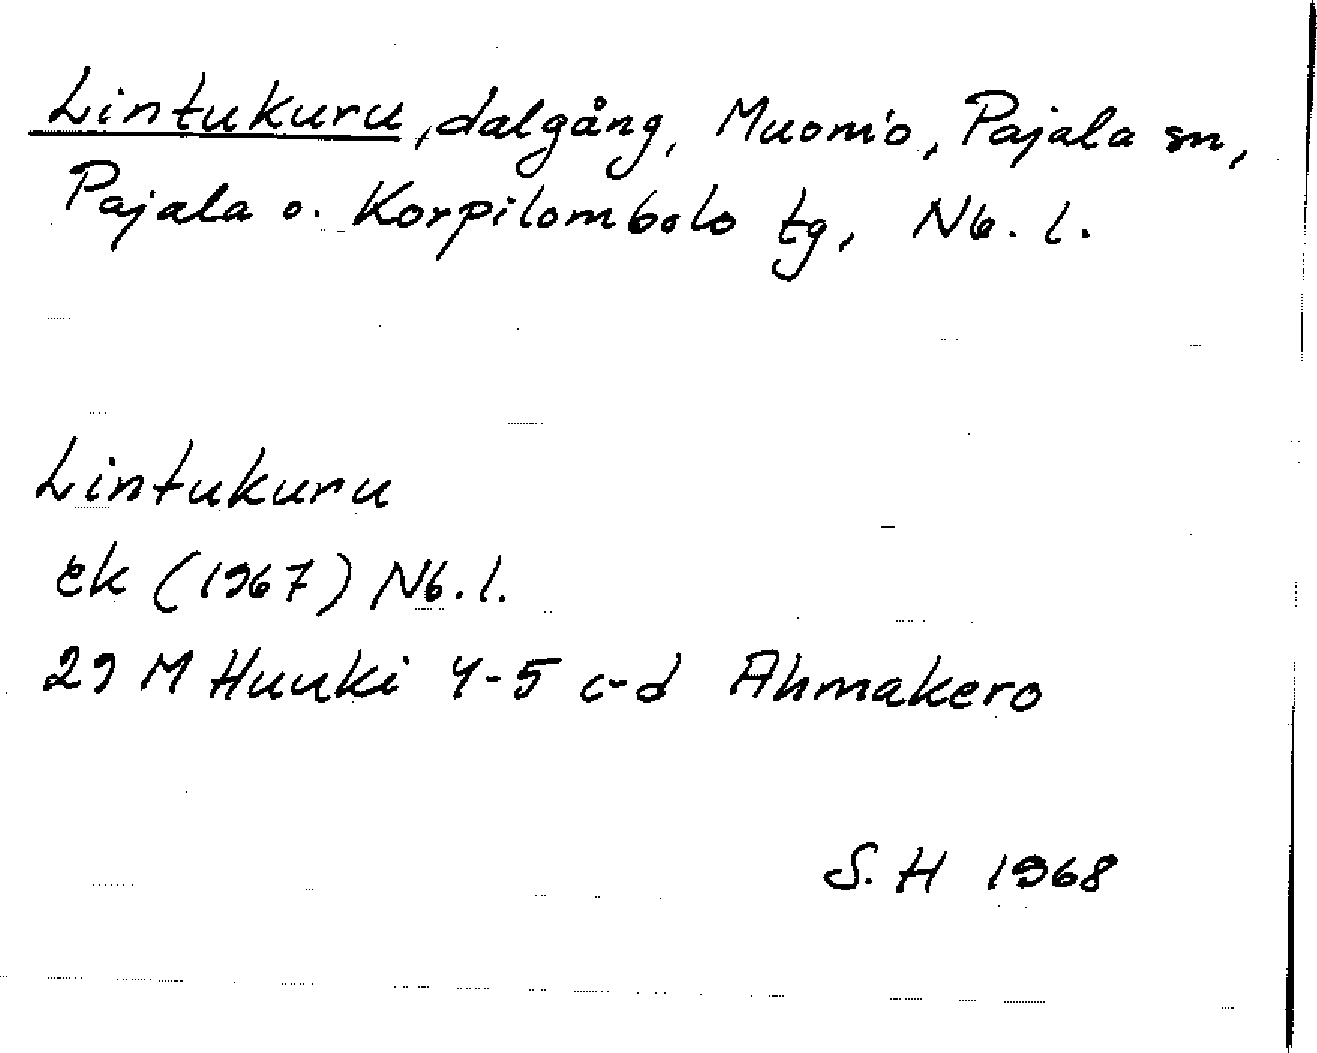 Lintukuru, dalgång, Muonio, Pajala sn,
Pajala o. Korpilombolo tg, Nb. l.
Lintukuru
ek (1967) Nb. l.
29 M Huuki 4-5 c-d Ahmakero
S. H 1968